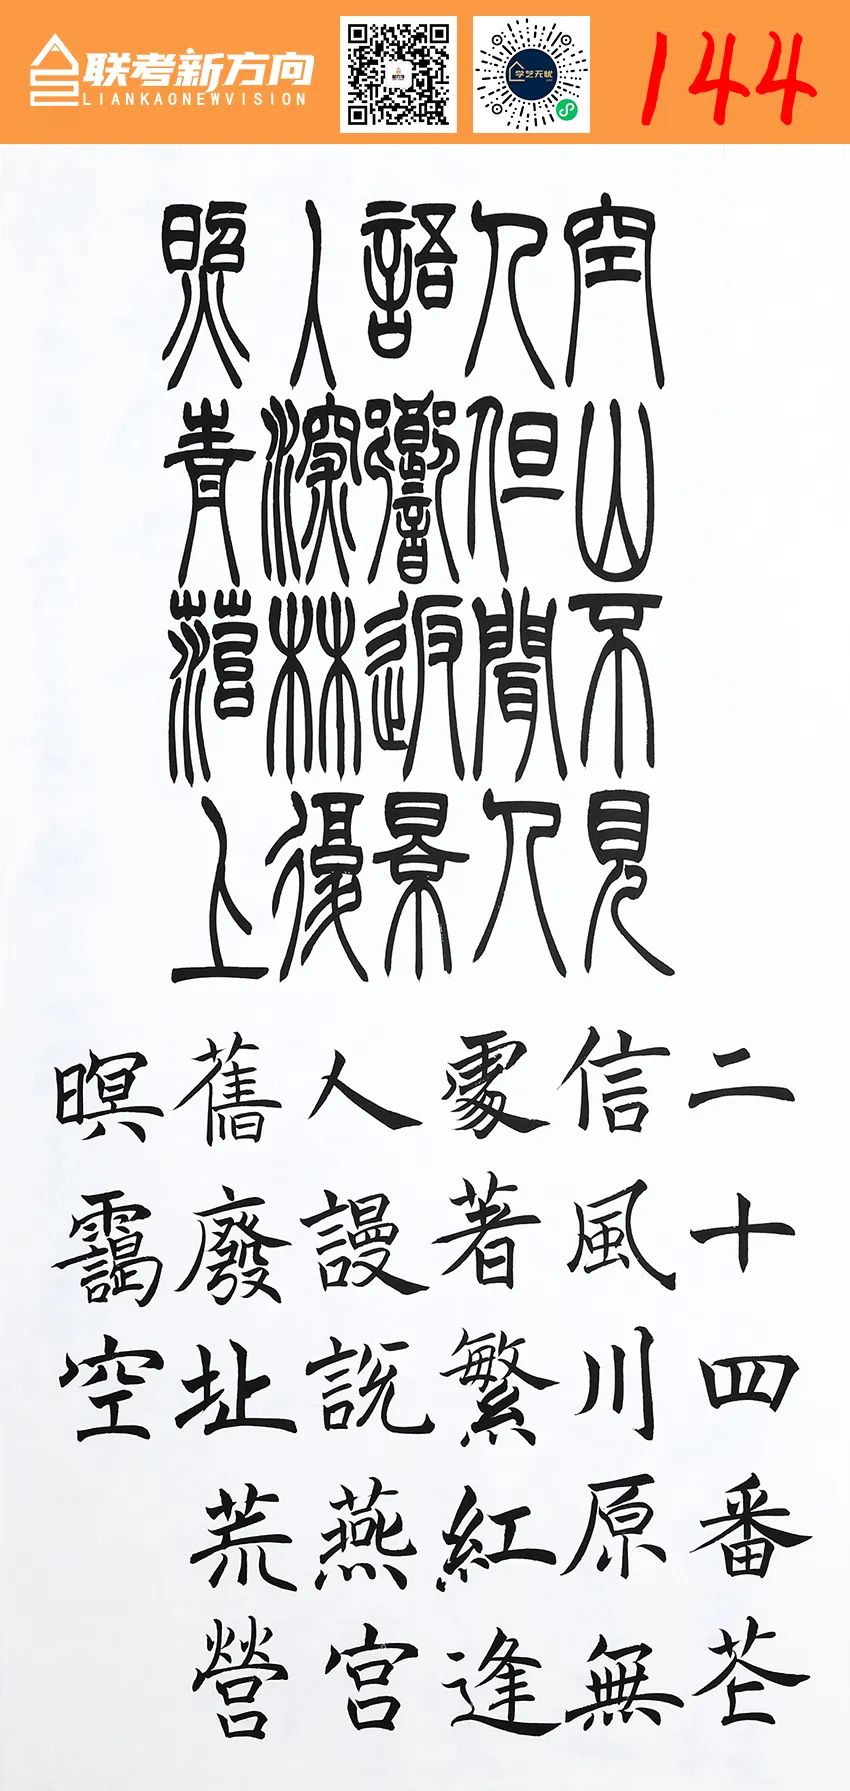 联考新方向
LIANKAONEWVISION
学艺无忧
144
空山不見
人但聞人
語響返景
人深林復
照青落上
二十四番花
信風川原無
處著繁紅逢
人謾說燕宮
舊廢址荒營
暝靄空